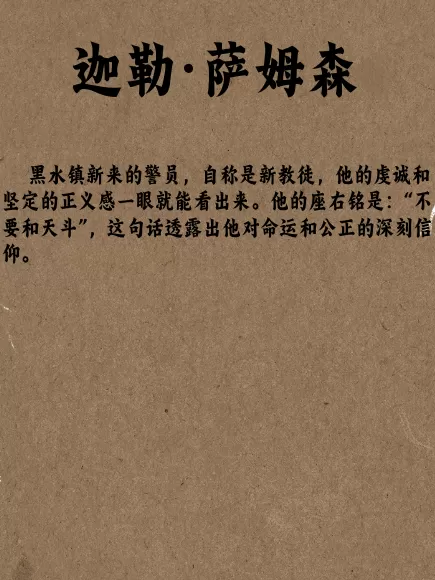 迦勒·萨姆森
黑水镇新来的警员，自称是新教徒，他的虔诚和
坚定的正义感一眼就能看出来。他的座右铭是：“不
要和天斗”，这句话透露出他对命运和公正的深刻信
仰。